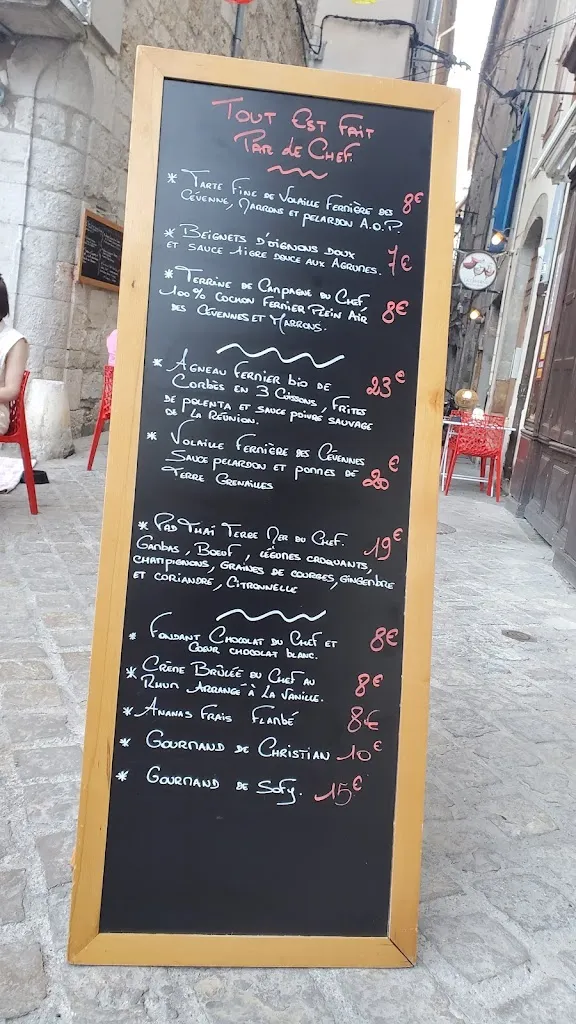 Tout Est Fait
Par de Chef.
* Tarte Fine de Volaille Fermière des 8€
Cévenne, Marrons et pelardon A.O.P.
* Beignets d'oignons doux 7€
et sauce aigre douce aux Agrumes.
* Terrine de Campagne du Chef 8€
100% Cochon Fermier Plein Air
des Cévennes et Marrons.
* Agneau Fermier bio de 23€
Corbès en 3 Cuissons, Frites
de polenta et sauce poivre sauvage
de la Réunion.
* Volaille Fermière des Cévennes 20€
Sauce pelardon et pommes de
Terre Grenailles
* Pad Thaï Terre Mer du Chef. 19€
Gambas, Boeuf, légumes croquants,
champignons, graines de courges, gingenbre
et coriandre, Citronnelle
* Fondant Chocolat du Chef et 8€
Coeur chocolat blanc.
* Crème Brûlée du Chef au 8€
Rhum Arrangé à La Vanille.
* Ananas Frais Flambé 8€
* Gourmand de Christian 10€
* Gourmand de Sofy. 15€